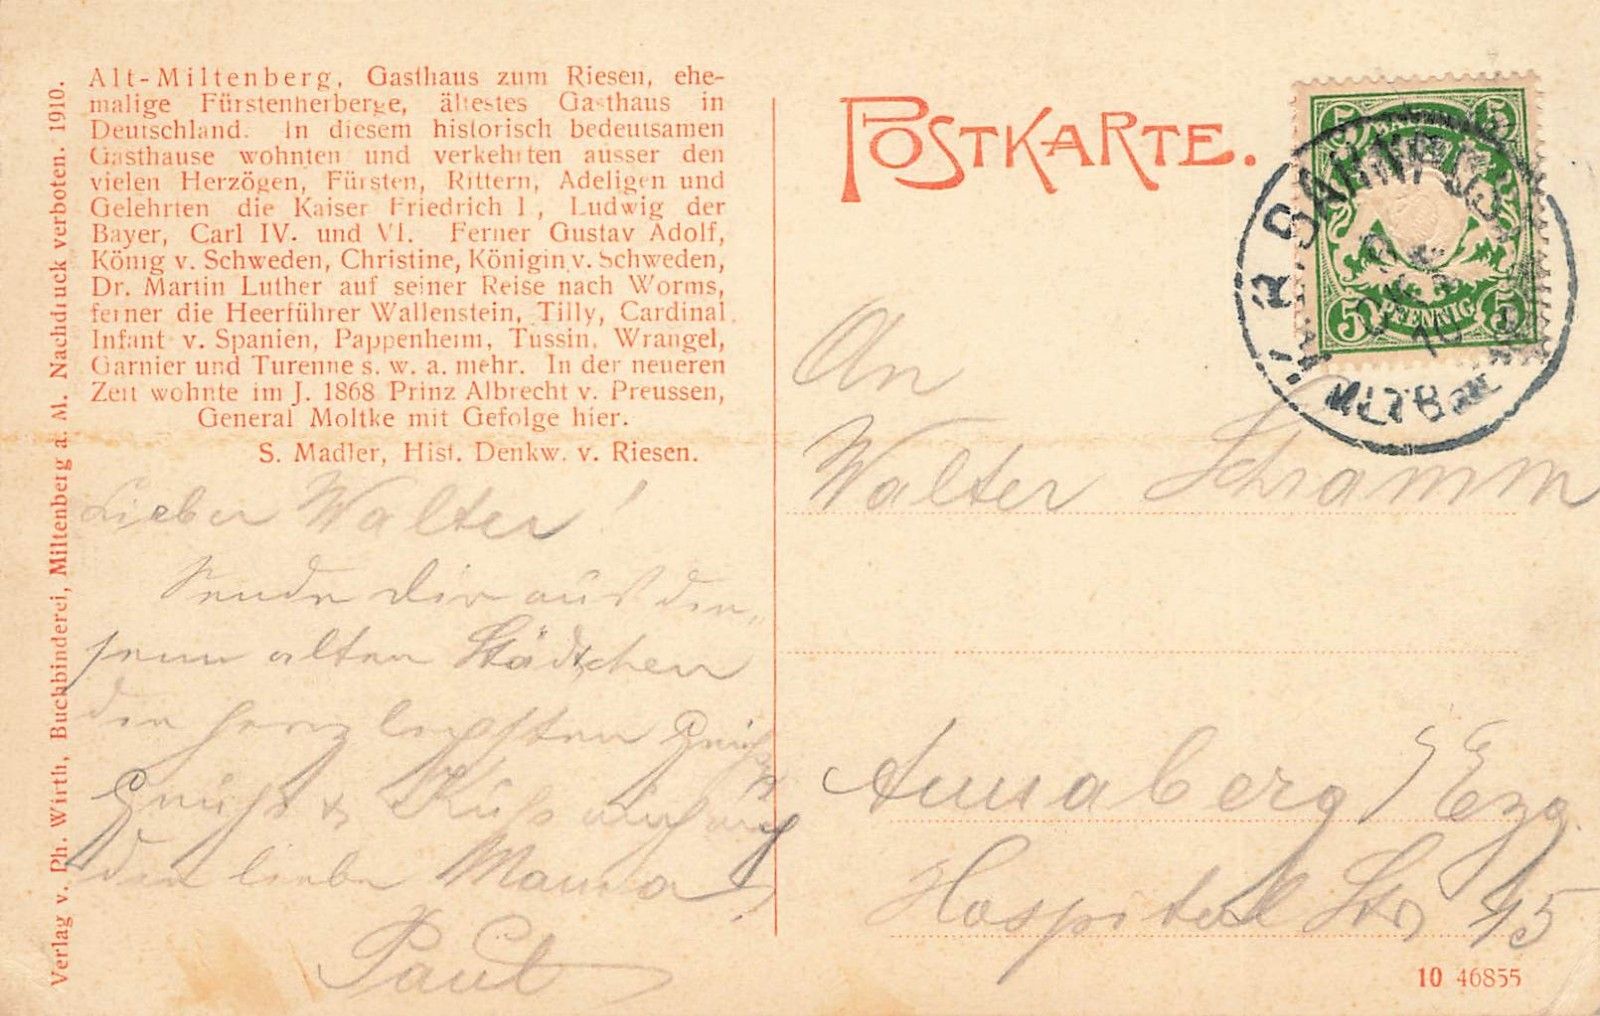 Alt-Miltenberg, Gasthaus zum Riesen, ehe-
malige Fürstenherberge, ältestes Gasthaus in
Deutschland. In diesem historisch bedeutsamen
Gasthause wohnten und verkehrten ausser den
vielen Herzögen, Fürsten, Rittern, Adeligen und
Gelehrten die Kaiser Friedrich I, Ludwig der
Bayer, Carl IV. und VI. Ferner Gustav Adolf,
König v. Schweden, Christine, Königin v. Schweden,
Dr. Martin Luther auf seiner Reise nach Worms,
ferner die Heerführer Wallenstein, Tilly, Cardinal
Infant v. Spanien, Pappenheim, Tussin, Wrangel,
Garnier und Turenne s. w. a. mehr. In der neueren
Zeit wohnte im J. 1868 Prinz Albrecht v. Preussen,
General Moltke mit Gefolge hier.
S. Madler, Hist. Denkw. v. Riesen.
Verlag v. Ph. Wirth, Buchbinderei, Miltenberg a. M. Nachdruck verboten. 1910.
Lieber Walter!
Sende dir aus die-
sem alten Städtchen
die herzlichsten Grüße
Grüße & Kuß auch an
die liebe Mama!
Paul
POSTKARTE.
5 PFENNIG 5
K. B. BAHNPOST
10
An
Walter Schramm
Annaberg / Erzg.
Hospital Str 45
10 46855